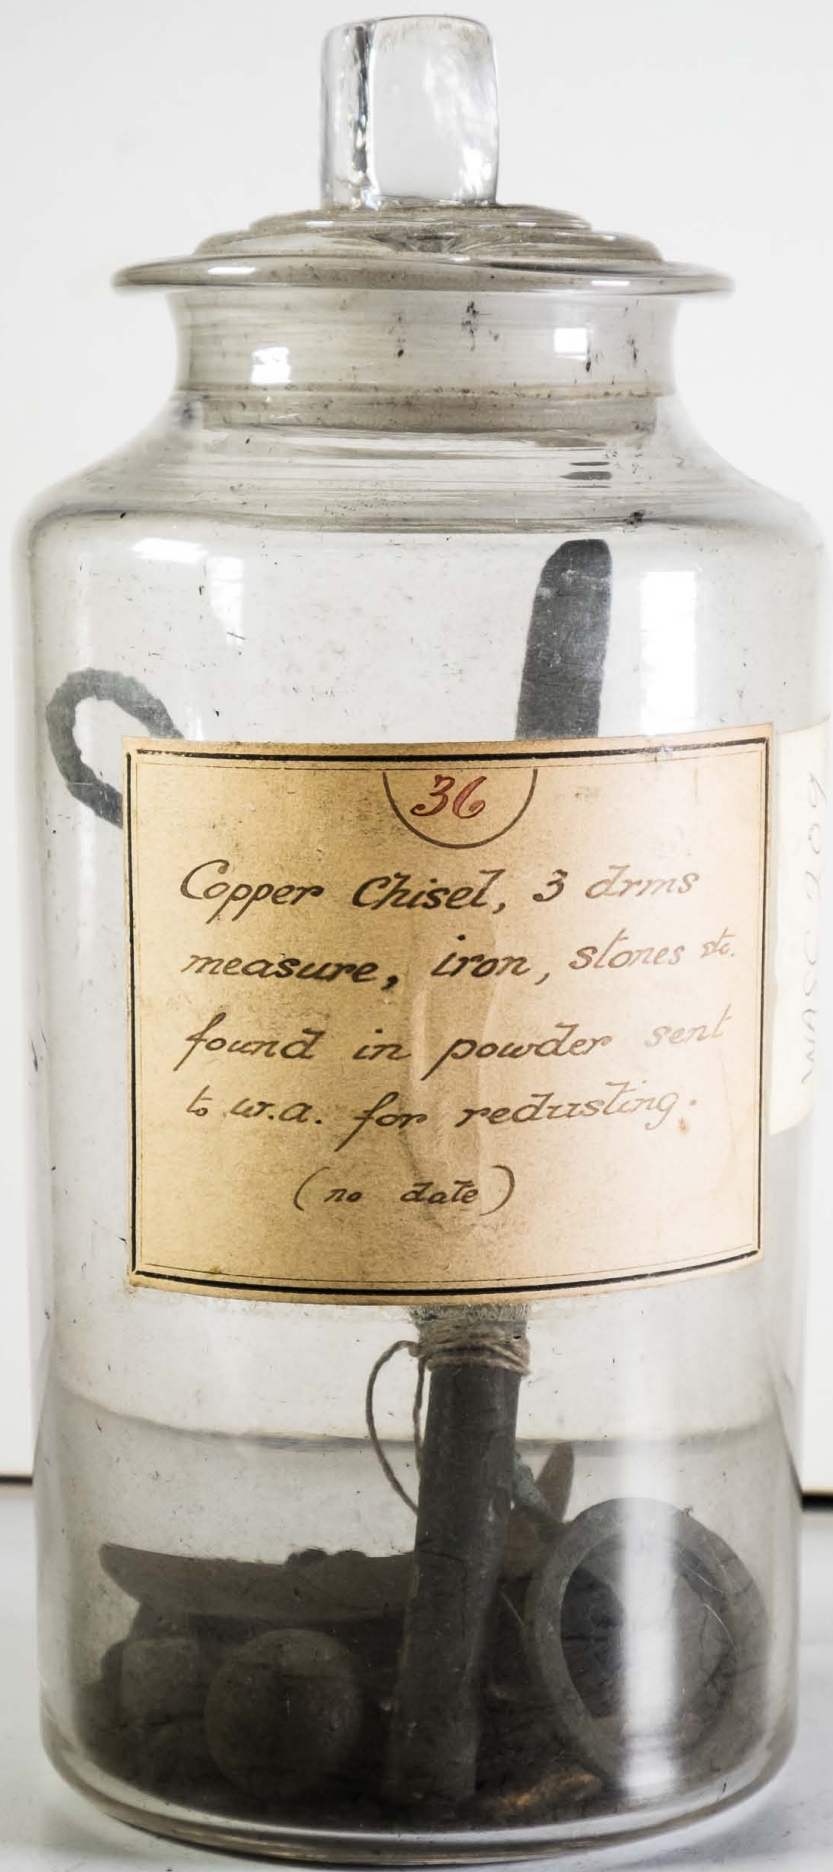 36
Copper Chisel, 3 drms
measure, iron, stones etc.
found in powder sent
to w.a. for redusting.
(no date)
WASC 209